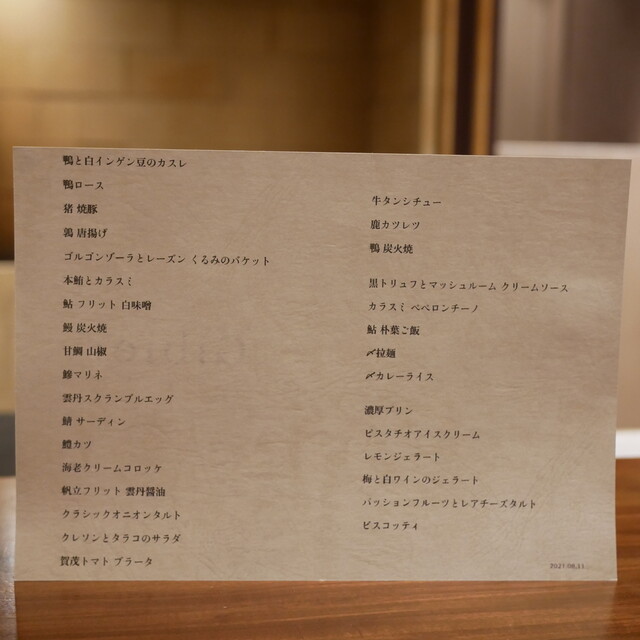 鴨と白インゲン豆のカスレ
鴨ロース
猪 焼豚
鶉 唐揚げ
ゴルゴンゾーラとレーズン くるみのバケット
本鮪とカラスミ
鮎 フリット 白味噌
鰻 炭火焼
甘鯛 山椒
鯵マリネ
雲丹スクランブルエッグ
鯖 サーディン
鱧カツ
海老クリームコロッケ
帆立フリット 雲丹醤油
クラシックオニオンタルト
クレソンとタラコのサラダ
賀茂トマト ブラータ
牛タンシチュー
鹿カツレツ
鴨 炭火焼
黒トリュフとマッシュルーム クリームソース
カラスミ ペペロンチーノ
鮎 朴葉ご飯
〆拉麺
〆カレーライス
濃厚プリン
ピスタチオアイスクリーム
レモンジェラート
梅と白ワインのジェラート
パッションフルーツとレアチーズタルト
ビスコッティ
2021.08.11